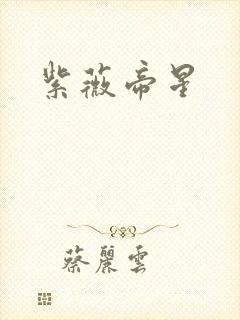 紫薇帝星
蔡麗雲